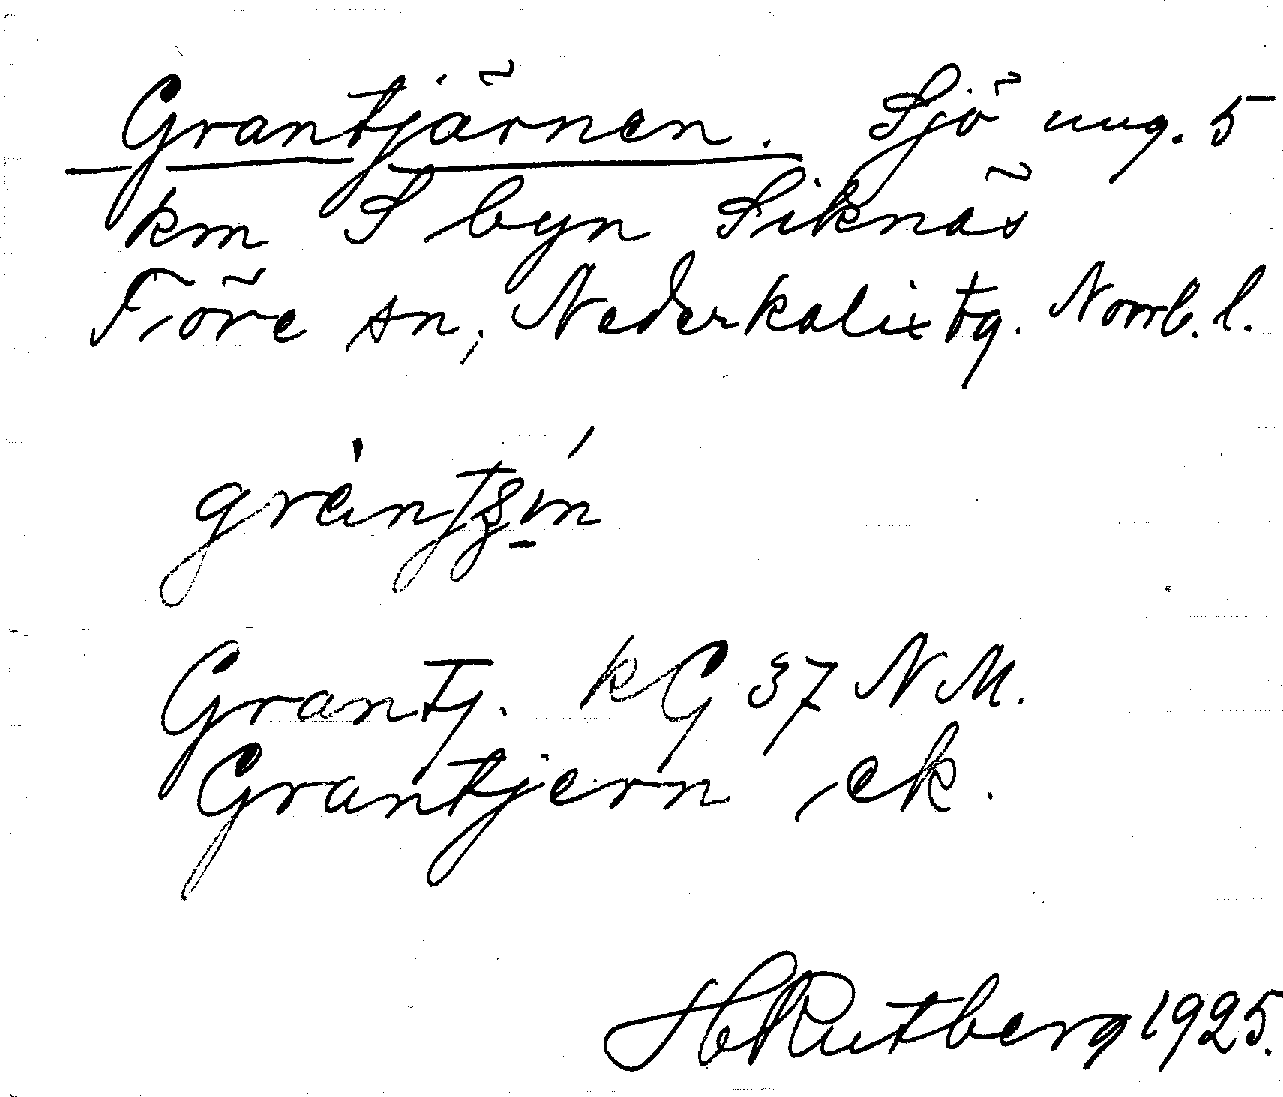 Grantjärnen. Sjö ung. 5
km S byn Siknäs
Töre sn, Nederkalix tg. Norrb. l.
Grantj. kG 37 NM.
Grantjern ek.
H Rutberg 1925.